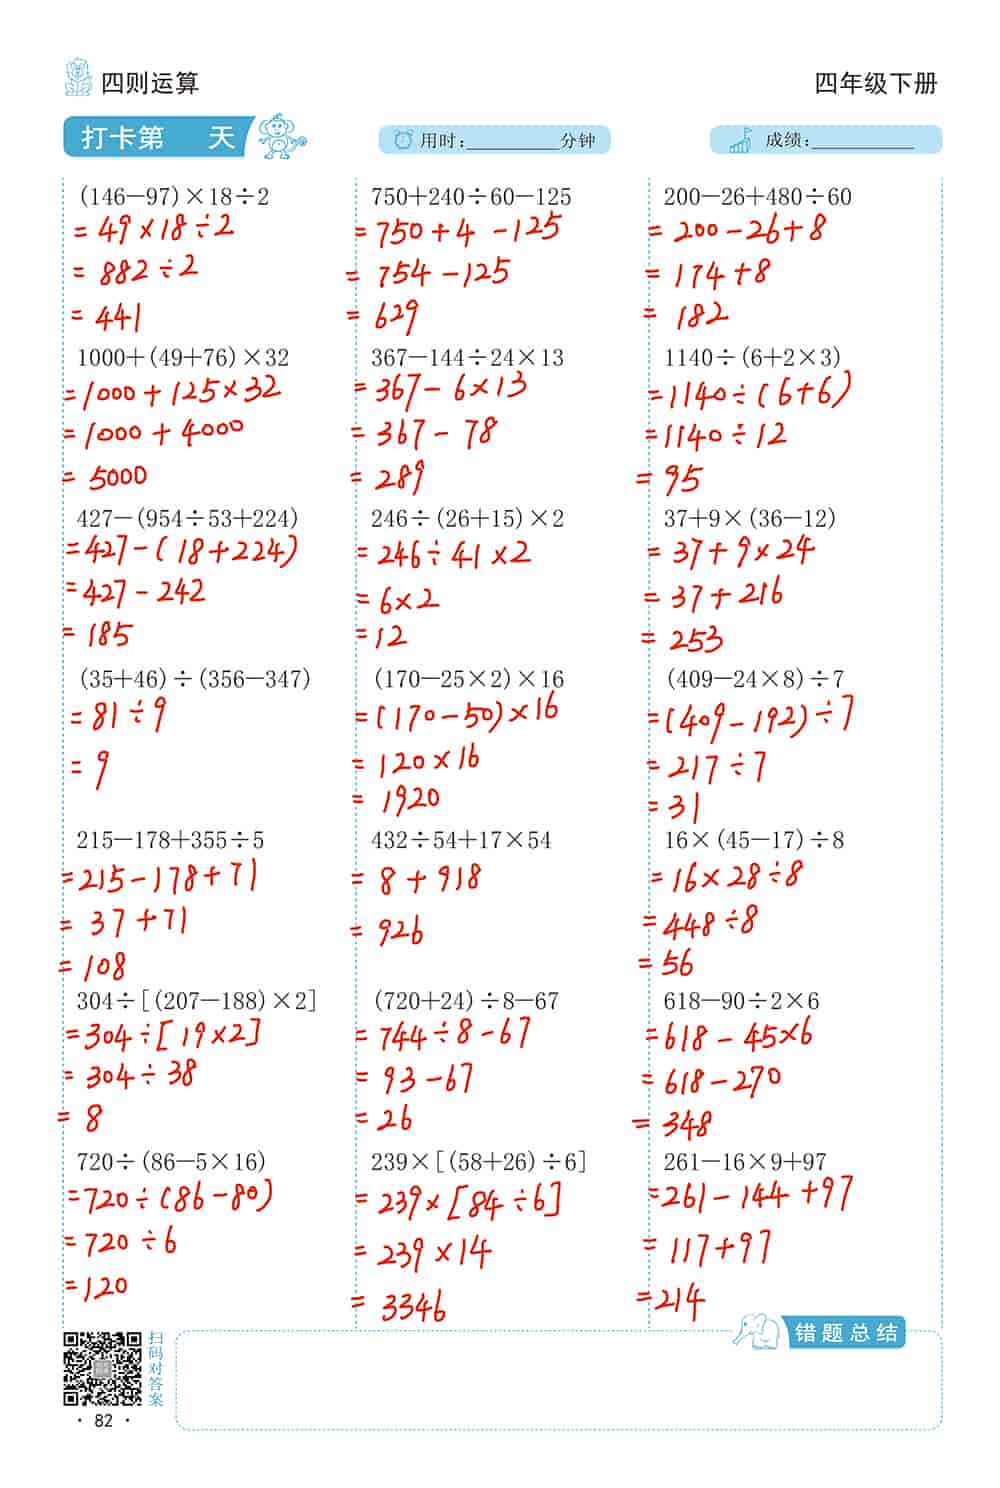 四则运算
四年级下册
打卡第 天
用时:__________分钟
成绩:__________
(146－97)×18÷2
= 49×18÷2
= 882÷2
= 441
750+240÷60－125
= 750+4 －125
= 754－125
= 629
200－26+480÷60
= 200－26+8
= 174+8
= 182
1000+(49+76)×32
=1000+125×32
=1000+4000
= 5000
367－144÷24×13
=367－6×13
= 367－78
= 289
1140÷(6+2×3)
=1140÷(6+6)
=1140÷12
= 95
427－(954÷53+224)
=427－(18+224)
=427－242
= 185
246÷(26+15)×2
=246÷41×2
=6×2
=12
37+9×(36－12)
= 37+9×24
= 37+216
= 253
(35+46)÷(356－347)
= 81÷9
= 9
(170－25×2)×16
=(170－50)×16
= 120×16
= 1920
(409－24×8)÷7
=(409－192)÷7
= 217÷7
= 31
215－178+355÷5
=215－178+71
= 37+71
= 108
432÷54+17×54
= 8+918
= 926
16×(45－17)÷8
= 16×28÷8
= 448÷8
= 56
304÷[(207－188)×2]
=304÷[19×2]
= 304÷38
= 8
(720+24)÷8－67
= 744÷8－67
= 93－67
= 26
618－90÷2×6
=618－45×6
= 618－270
= 348
720÷(86－5×16)
=720÷(86－80)
=720÷6
=120
239×[(58+26)÷6]
= 239×[84÷6]
= 239×14
= 3346
261－16×9+97
=261－144+97
= 117+97
=214
错题总结
扫码对答案
· 82 ·